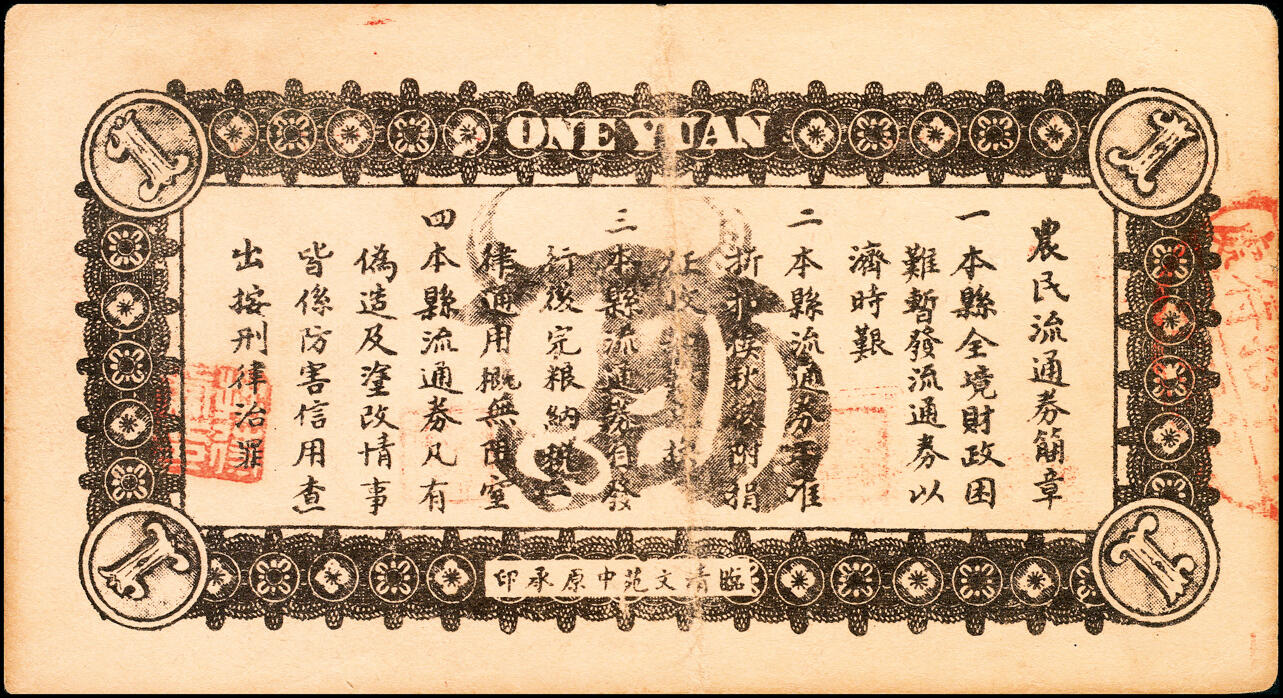 ONE YUAN
農民流通券簡章
一 本縣全境財政困
難暫發流通券以
濟時艱
二 本縣流通券
折扣俟秋後附捐
三 本縣流通券自發
行後完粮納税一
律通用概無阻室
四 本縣流通券凡有
偽造及塗改情事
皆係防害信用查
出按刑律治罪
臨清文苑中原承印
1
1
1
1